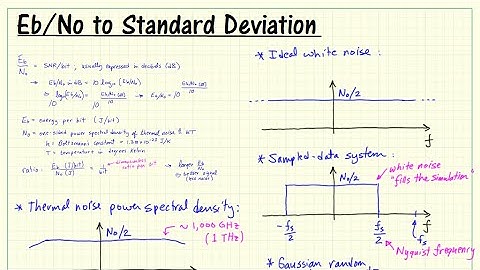 Eb/No to Standard Deviation
Eb/No = SNR/bit, usually expressed in decibels (dB)
→ Eb/No in dB = 10 log10 (Eb/No)
→ 10^log10(Eb/No) = 10^(Eb/No(dB)/10) → Eb/No = 10^(Eb/No(dB)/10)
Eb = energy per bit (J/bit)
No = one-sided power spectral density of thermal noise = kT
k = Boltzmann's constant = 1.38×10^-23 J/K
T = temperature in degrees Kelvin
ratio: Eb (J/bit) / No (J)
larger Eb/No
* Thermal noise power spectral density:
No/2
~ 1,000 GHz
(1 THz)
* Ideal white noise:
No/2
f
* Sampled-data system:
No/2
white noise
"fills the simulation"
-fs/2
fs/2
fs
f
Nyquist frequency
* Gaussian random,